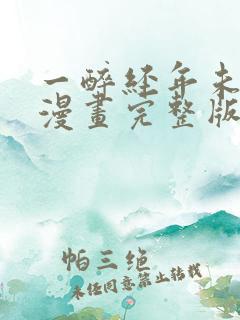 一醉经年未
漫畫完整版
帕三绝
未经同意禁止转载